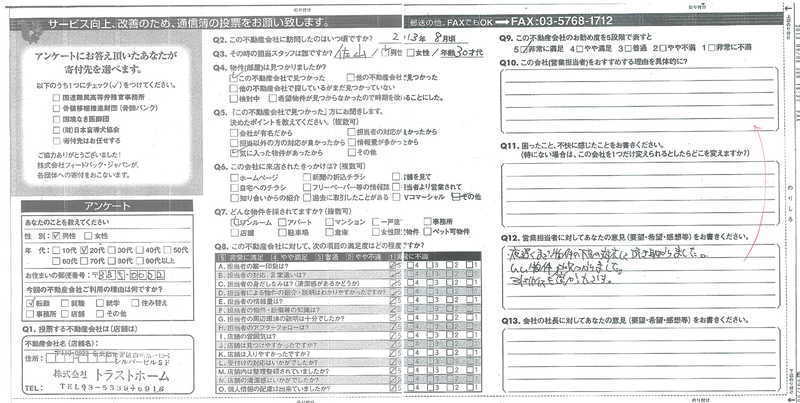 サービス向上、改善のため、通信簿の投票をお願い致します。
郵送の他、FAXでもOK
FAX:03-5768-1712
アンケートにお答え頂いたあなたが
寄付先を選べます。
以下のうち1つにチェック(✓)をつけてください。
□国連難民高等弁務官事務所
□骨髄移植推進財団(骨髄バンク)
□国境なき医師団
□(財)日本盲導犬協会
□寄付先はお任せする
ご協力ありがとうございました!
株式会社フィードバック・ジャパンが、
各団体への寄付をおこないます。
アンケート
あなたのことを教えてください
性 別: ☑男性 □女性
年 代: □10代 ☑20代 □30代 □40代 □50代
□60代 □70代 □80代 □90代以上
お住まいの郵便番号:〒
今回の不動産会社ご利用の理由は何ですか?
☑転勤 □就職 □就学 □住み替え
□事務所 □店舗 □その他
Q1. 投票する不動産会社は(店舗は)
不動産会社名(店舗名):
住所:
シルバービル5F
株式会社 トラストホーム
TEL:
Q2. この不動産会社に訪問したのはいつ頃ですか?
2013年 8月頃
Q3. その時の担当スタッフは誰ですか?
☑男性 □女性 / 年齢30才代
Q4. 物件(部屋)は見つかりましたか?
☑この不動産会社で見つかった □他の不動産会社で見つかった
□他の不動産会社で探しているがまだ見つかっていない
□検討中 □希望物件が見つからなかったので時期を改めることにした。
Q5.「この不動産会社で見つかった」方にお聞きします。
決めたポイントを教えてください。(複数可)
□会社が有名だから □担当者の対応がよかったから
□担当以外の方の対応が良かったから □情報量が多かったから
☑気に入った物件があったから □その他
Q6. この会社に来店されたきっかけは?(複数可)
□ホームページ □新聞の折込チラシ □店舗を見て
□自宅へのチラシ □フリーペーパー等の情報誌 □担当者より営業されて
□知り合いからの紹介 □過去に取引したことがある □TVコマーシャル ☑その他
Q7. どんな物件を探されてますか?(複数可)
☑ワンルーム □アパート □マンション □一戸建 □事務所
□店舗 □駐車場 □倉庫 □女性限定物件 □ペット可物件
Q8. この不動産会社に対して、次の項目の満足度はどの程度ですか?
5 非常に満足 4 やや満足 3 普通 2 やや不満 1 非常に不満
A. 担当者の第一印象は?
B. 担当者の対応、言葉遣いは?
C. 担当者の身だしなみは?(清潔感があるかどうか)
D. 担当者による物件の紹介・説明はわかりやすかったですか?
E. 担当者の情報量は?
F. 担当者の物件・設備等の知識は?
G. 担当者の周辺環境の説明は十分でしたか?
H. 担当者のアフターフォローは?
I. 店舗の雰囲気は?
J. 店舗は見つけやすかったですか?
K. 店舗は入りやすかったですか?
L. 受付の対応はいかがでしたか?
M. 店舗内は整理整頓されていましたか?
N. 店舗の清潔感はいかがでしたか?
O. 個人情報の配慮は出来ていましたか?
Q9. この不動産会社のお勧め度を5段階で表すと
5☑非常に満足 4□やや満足 3□普通 2□やや不満 1□非常に不満
Q10. この会社(営業担当者)をおすすめする理由を具体的に?
Q11. 困ったこと、不快に感じたことをお書きください。
(特にない場合は、この会社を1つだけ変えられるとしたらどこを変えますか?)
Q12. 営業担当者に対してあなたの意見(要望・希望・感想等)をお書きください
Q13. 会社の社長に対してあなたの意見(要望・希望・感想等)をお書きください。